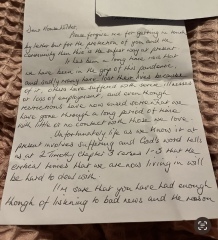 Dear Householder,
Please forgive me for getting in touch
by letter but for the protection of you and the
community this here is the safest way at present.
It has been a long time now that
we have been in the grip of this pandemic
and sadly many have lost their lives because
of it, others have suffered with severe illnesses
or loss of employment, and even though
restrictions have now eased somewhat we
have gone through a long period of time
with little or no contact with those we love.
Unfortunately life as we know it at
present involves suffering and God's word tells
us at 2 Timothy chapter 3 verses 1-5 that the
critical times that we are now living in will
be hard to deal with.
I'm sure that you have had enough
though of listening to bad news and the reason